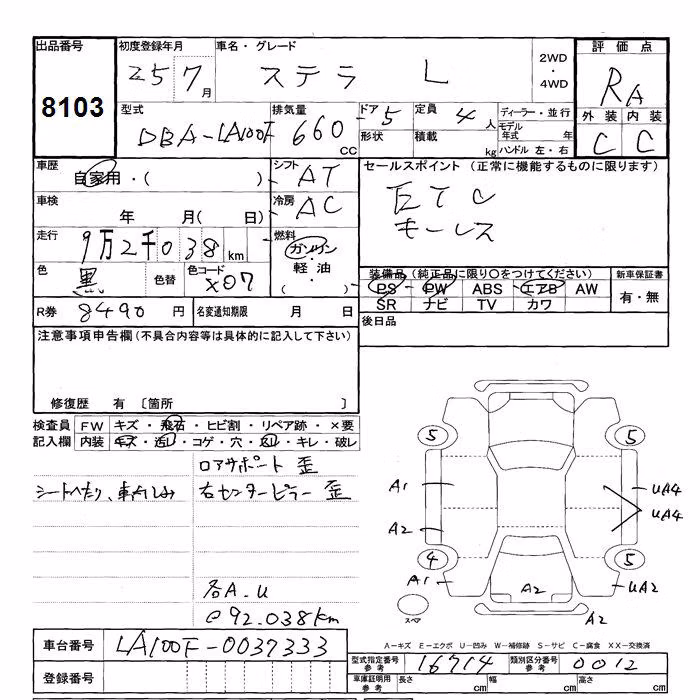 出品番号 初度登録年月 車名・グレード 評価点
8103 25 7月 ステラ L 2WD・4WD RA
型式 排気量 ドア 5 定員 4人 ディーラー・並行 外装 内装
DBA-LA100F 660cc 形状 積載 kg モデル年式 年 C C
ハンドル 左・右
車歴 自家用・( ) シフト AT セールスポイント (正常に機能するものに限ります)
車検 年 月( 日) 冷房 AC ETC
キーレス
走行 9万2千038km 燃料 ガソリン・軽油・( )
色 黒 色替 色コード X07 装備品 (純正品に限り○をつけてください) 新車保証書
PS PW ABS エアB AW 有・無
R券 8490円 名変通知期限 月 日 SR ナビ TV カワ
注意事項申告欄(不具合内容等は具体的に記入して下さい) 後日品
修復歴 有 〔箇所 〕
検査員 FW キズ・飛石・ヒビ割・リペア跡・×要
記入欄 内装 キズ・汚レ・コゲ・穴・スレ・キレ・破レ
ロアサポート 歪
シートへたり、 右センターピラー 歪
5 5
A1 UA4
UA4
A2
4 5
A1 A2 UA2
各A.U
@92.038km スペア A2
車台番号 LA100F-0037333 A-キズ E-エクボ U-凹み W-補修跡 S-サビ C-腐食 XX-交換済
型式指定番号 参考 16714 類別区分番号 参考 0012
登録番号 車庫証明用 参考 長さ cm 幅 cm 高さ cm